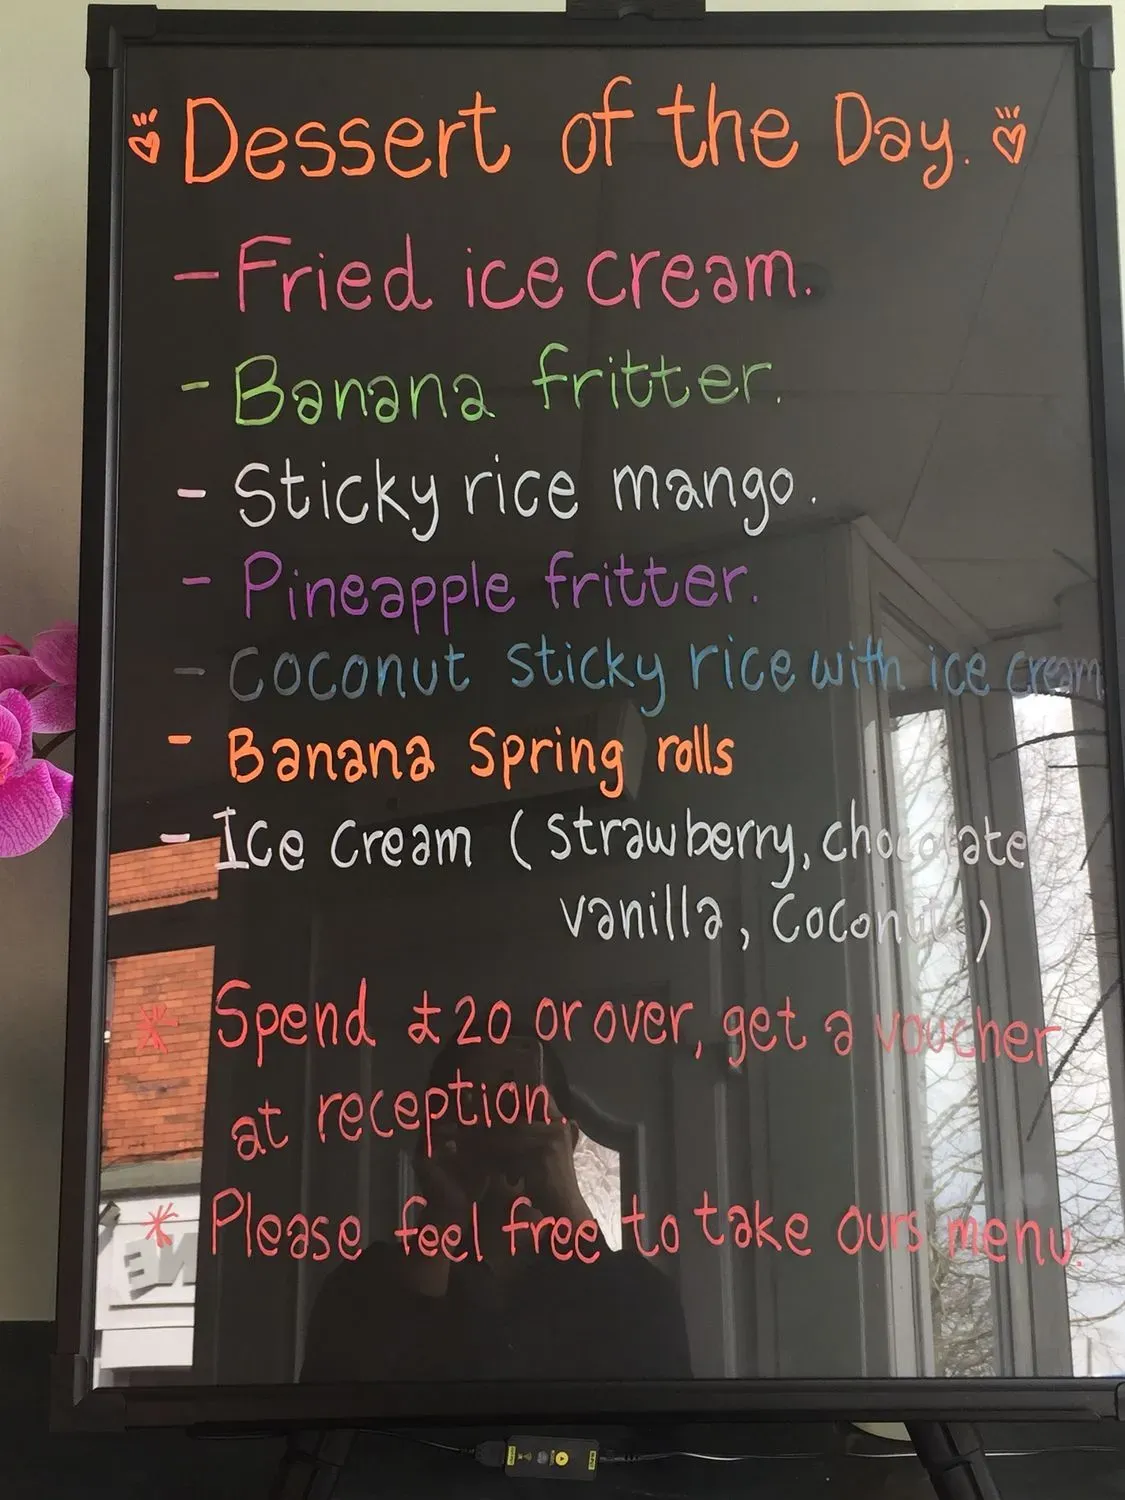 Dessert of the Day.
- Fried ice cream.
- Banana fritter.
- Sticky rice mango.
- Pineapple fritter.
- Coconut sticky rice with ice cream
- Banana Spring rolls
- Ice Cream (strawberry, chocolate
vanilla, Coconut)
* Spend £20 or over, get a voucher
at reception.
* Please feel free to take ours menu.